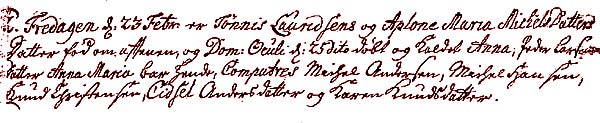 Fredagen d: 23 Febr: er Tønnis Lauridsens og Aplone Maria Michels Datters
Datter fød om aftenen, og Dom: Oculi d: 25 dito døbt og kaldet Anna, Peder
datter Anna Maria bar hende, Computres Michel Andersen, Michel Hansen,
Knud Christensen, Cidsel Andersdatter og Karen Knudsdatter.